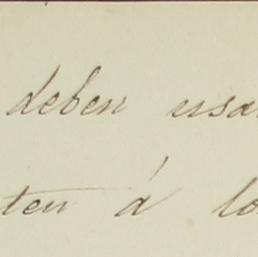 deben usa
ten á lo